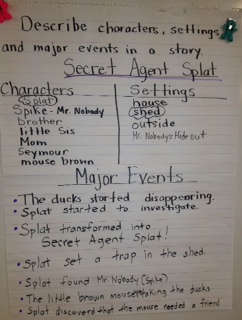 Describe characters, settings,
and major events in a story.
Secret Agent Splat
Characters
Splat
Spike - Mr. Nobody
brother
little Sis
Mom
Seymour
mouse brown
Settings
house
shed
outside
Mr. Nobody's Hide out
Major Events
• The ducks started disappearing.
• Splat started to investigate.
• Splat transformed into
Secret Agent Splat!
• Splat set a trap in the shed.
• Splat found Mr Nobody (Spike)
• The little brown mouse taking the ducks
• Splat discoverd that the mouse needed a friend